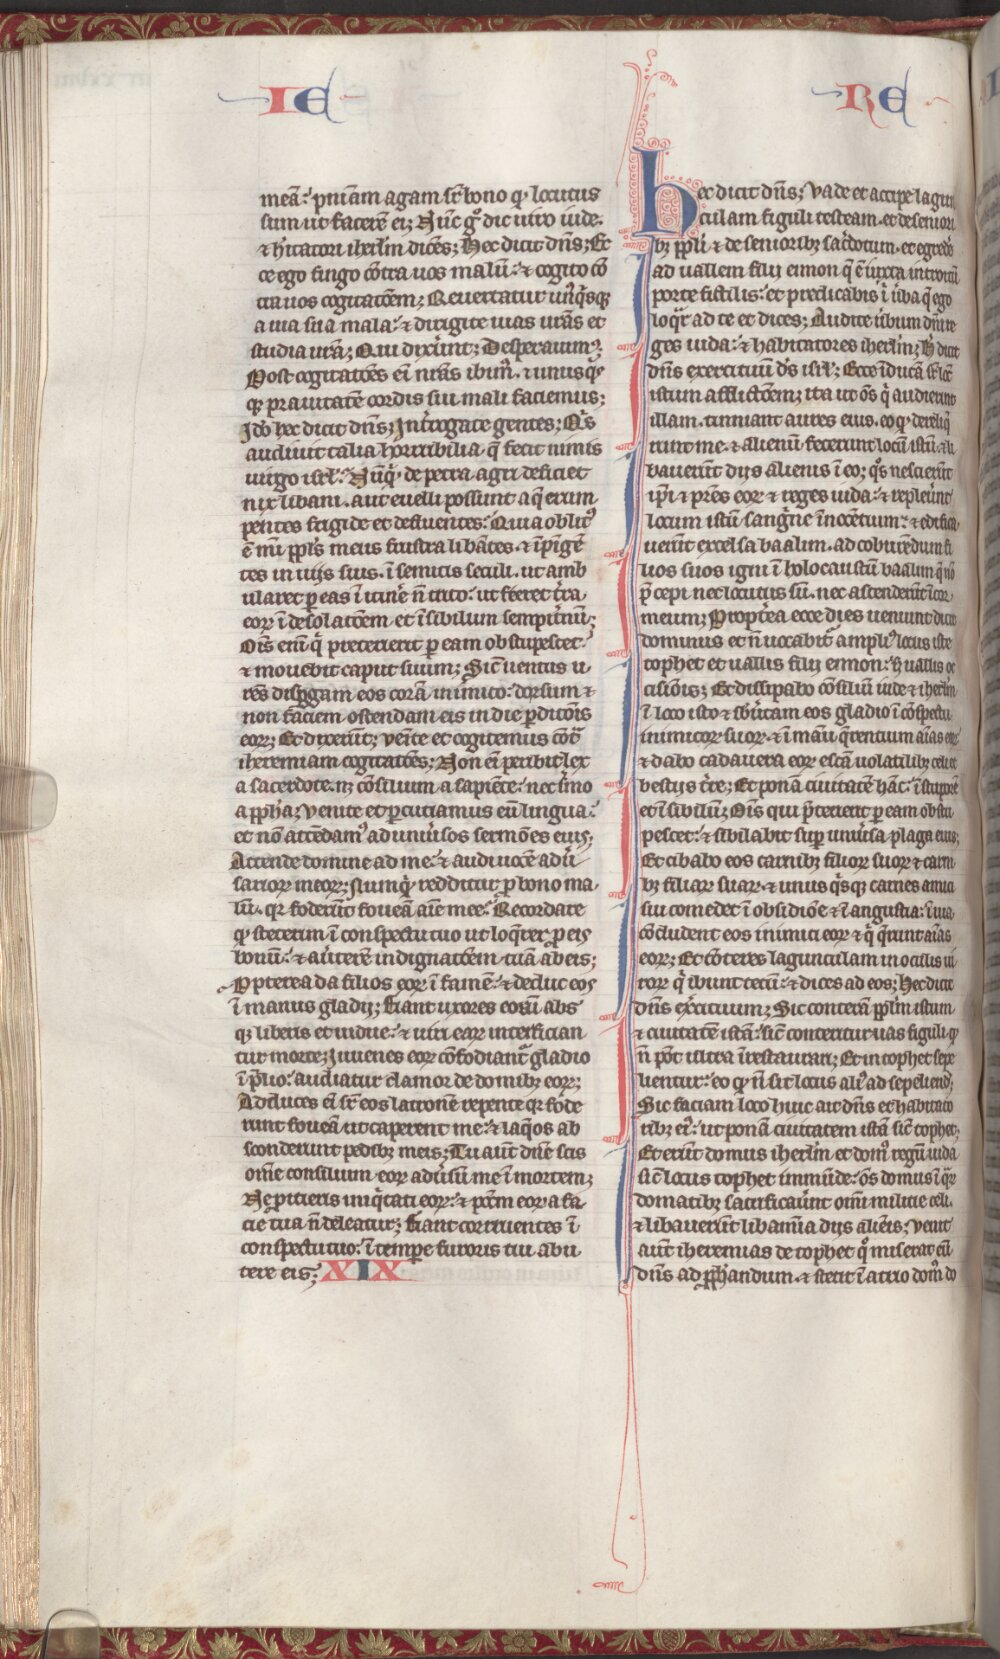 IE
RE
meā. pniām agam sr̄ bono qͥ locutus
sum ut facerē ei; Nūc gͦ dic uiro iude.
⁊ h̄itatori ihr̄lm dicēs; Hec dicit dn̄s; Ec
ce ego fingo cōtra uos malū. ⁊ cogito cō
tra uos cogitatōem; Reuertatur unꝰqͥsqꝫ
a uia sua mala. ⁊ dirigite uias urās et
studia urā; Qui dixer̄unt; Desperauimꝰ.
Post cogitatōes ei nrās ibimꝰ. ⁊ unusqͥs
qꝫ prauitatē cordis sui mali faciemus;
Idō hec dicit dn̄s; Int̄rogate gentes; Qͥs
audiuit talia horribilia. q̄ fecit nimis
uirgo isrl̄. Nūqͥd deficiet de petra agri
nix libani. aut euelli possunt aq̄ erum
pentes frigide et defluentes. Quia oblitꝰ
ē mei ppl̄s meus frustra libātes. ⁊ īpīgē
tes in uijs suis. ī semitis seculi. ut amb
ularet ꝑ eas ī itinē n̄ trito. ut fieret t̄ra
eoꝝ ī desolatōem. et ī sibilum sempit̄nū;
Oīs enī qͥ preterierit ꝑ eam obstupescet.
⁊ mouebit caput suum; Sic̄ uentus u
rēs disꝑgam eos corā inimico. dorsum ⁊
non faciem ostendam eis in die ꝑditōis
eoꝝ; Et dixer̄unt; Venite et cogitemus cōt̄
iheremiam cogitatōes; Non ei peribit lex
a sacerdote. nꝫ cōsilium a sapiēte. nec sr̄mo
a ꝓph̄a; Venite et ꝑcutiamus eū lingua.
et nō attēdamꝰ ad uniūsos sermōes eius;
Attende domine ad me. ⁊ audi uocē adū
sarioꝝ meoꝝ; Numqͥd redditur ꝓ bono ma
lū. qꝛ foder̄ūt foueā aīe mee. Recordare
qͥ steterim ī conspectu tuo ut loq̄rer ꝓ eis
bonū. ⁊ aūterē indignatōem tuā ab eis;
Ꝓpterea da filios eoꝝ ī famē. ⁊ deduc eos
ī manus gladij; Fiant uxores eoꝝ abs
qꝫ liberis et uidue. ⁊ uiri eoꝝ interfician
tur morte; Iuuenes eoꝝ cōfodiant̄ gladio
ī p̄lio. audiatur clamor de domibꝫ eoꝝ;
Adduces ei sr̄ eos latronē repente qꝛ fode
runt foueā ut caperent me. ⁊ laq̄os ab
sconderunt pedibꝫ meis; Tu aūt dn̄e scis
omē consilium eoꝝ adūsū me ī mortem;
Ne ꝓpicieris iniqͥtati eoꝝ. ⁊ pc̄m eoꝝ a fa
cie tua n̄ deleatur; Fiant corruentes ī
conspectu tuo. ī tempe furoris tui abu
tere eis; XIX
Hec dicit dn̄s; Vade et accipe lagun
culam figuli testeam. et de seniori
bꝫ ppl̄i ⁊ de senioribꝫ sac̄dotum. et egredeˢ
ad uallem filij ennon q̄ ē iuxta introitū
porte fictilis. et predicabis ī ūba q̄ ego
loqͣr ad te et dices; Audite ūbum dn̄i re
ges iuda. ⁊ habitatores iherl̄m; H̄ dicit
dn̄s exercituū dͥs isrl̄; Ecce īducā sr̄ locū
istum afflictōem; ita ut ōs qͥ audierint
illam. tinniant aures eius. eo qͥ dereliq̄
runt me. ⁊ alienū fecerunt locū istū. ⁊ li
bauerūt dijs alienis ī eo; qͦs nescierūt
ip̄i ⁊ pr̄es eoꝝ ⁊ reges iuda. ⁊ repleūnt
locum istū sangͥne īnocētium. ⁊ edifica
uerūt excelsa baalim. ad coburēdum fi
lios suos igni ī holocaustū baalim q̄ nō
p̄cepi nec locutus sū. nec ascenderūt ī cor
meum; Propt̄ea ecce dies ueniunt dicit
dominus et n̄ uocabit̄ ampliꝰ locus iste
tophet et uallis filij ennon. sꝫ uallis oc
cisiōis; Et dissipabo cōsiliū iude ⁊ iherl̄m
ī loco isto ⁊ sb̄uertam eos gladio ī cōspectu
inimicoꝝ suoꝝ. ⁊ ī manu q̄rentium aīas eoꝝ
⁊ dabo cadauera eoꝝ escā uolatilibꝫ celi et
bestijs t̄re; Et ponā ciuitatē hāc. ī stuporē
et ī sibilū; Oīs qui p̄terierit ꝑ eam obstu
pescet. ⁊ sibilabit suꝑ uniūsa plaga eius;
Et cibabo eos carnibꝫ filioꝝ suoꝝ ⁊ carni
bꝫ filiaꝝ suaꝝ. ⁊ unus qͥsqꝫ carnes amici
sui comedet ī obsidiōe ⁊ ī angustia. ī qua
cōcludent eos inimici eoꝝ ⁊ qͥ q̄runt aīas
eoꝝ; Et cōteres lagunculam in oculis ui
roꝝ qͥ ibunt tecū. ⁊ dices ad eos; Hec dicit
dn̄s ex̄cituum; Sic conterā ppl̄m istum
⁊ ciuitatē istā. sic̄ conteritur uas figuli qͥ
n̄ pōt ultra īrestaurari; Et in tophet sepe
lientur. eo qͥ n̄ sit locus aliꝰ ad sepeliend̄;
Sic faciam loco huic ait dn̄s et habitato
ribꝫ eiꝰ. ut ponā ciuitatem istā sic̄ tophet;
Et erūt domus iherl̄m et domꝰ regū iuda
sic̄ locus tophet īmūde. ōs domus ī qͣꝝ
domatibꝫ sacrficaūnt omī militie celi.
⁊ libauerūt libamīa dijs alienis. Venit
aūt iheremias de tophet qͦ miserat eū
dn̄s ad ꝓph̄andum. ⁊ stetit ī atrio domꝰ do